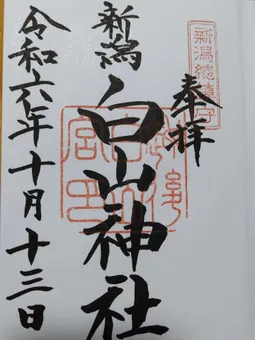 奉拝
新潟總鎮守
新潟
白山神社
令和六年十月十三日